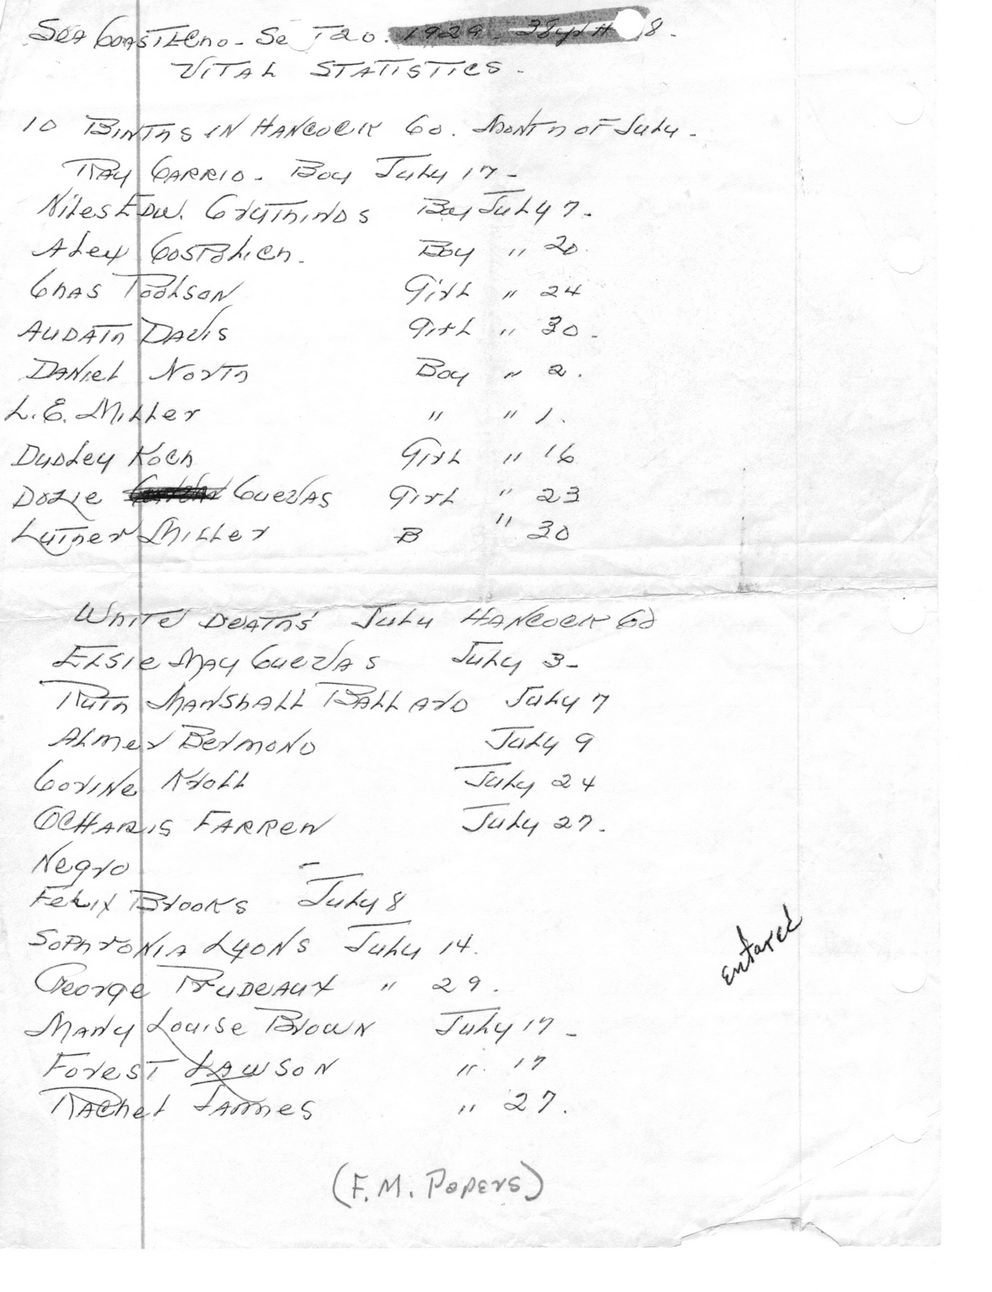 Sea Coast Echo - Se T 20. 1929 8.
Vital Statistics.
10 Births in Hancock Co. Month of July.
Ray Carrio - Boy July 17 -
Niles Edw. Boy July 7.
Alex Boy " 20.
Chas Poolson Girl " 24
Audath Davis Girl " 30.
Daniel North Boy " 2.
L. E. Miller " " 1.
Dudley Koch Girl " 16
Dozie Cuevas Girl " 23
Luther Miller B " 30
White Deaths July Hancock Co
Elsie May Cuevas July 3 -
Ruth Marshall Ballard July 7
Almer Bermond July 9
Corine Kroll July 24
Ocharis Farren July 27.
Negro -
Felix Brooks July 8
Sophronia Lyons July 14.
George Prudeaux " 29.
Mary Louise Brown July 17 -
Forest Lawson " 17
Rachel James " 27.
entared
(F. M. Popers)